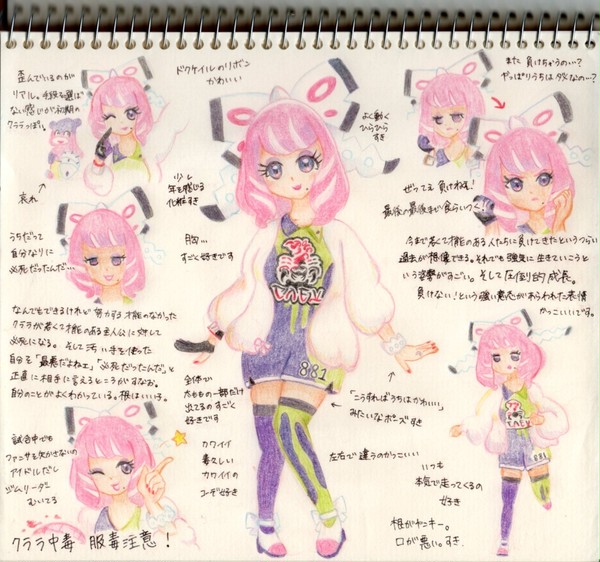 歪んでいるのが
リアル。手段を選ば
ない感じが初期の
クララっぽい。
哀れ
ドクケイルのリボン
かわいい
よく動く
ひらひら
すき
また負けちゃうの…?
やっぱりうちはダメなの…?
少し
年を感じる
化粧すき
胸…
すごく好きです
ぜってえ負けねぇ!
最後の最後まで食らいつく!!
うちだって
自分なりに
必死だったんだ…
今まで若くて才能のある人たちに負けてきたというつらい
過去が想像できる。それでも強気に生きていこうと
いう姿勢がすごい。そして圧倒的成長。
負けない!という強い意志があらわれてた表情
かっこいいです。
なんでもできるけれど努力する才能のなかった
クララが若くて才能のある主人公に対して
必死になる。そして汚い手を使った
自分を「最悪だよねェ」「必死だったんだ」と
正直に相手に言えるところがすなお。
自分のことがよくわかっている。根はいい子。
全体で
太ももの一部だけ
出てるのすごく
好きです
「こうすればうちはかわいい」
みたいなポーズすき
試合中でも
ファンサを欠かさないの
アイドルだし
ジムリーダー
むいてる
カワイイ
毒々しい
カワイイの
コーデ好き
左右で違うのかっこいい
いつも
本気で走ってくるの
好き
根がヤンキー。
口が悪い。すき
クララ中毒 服毒注意!
881
881